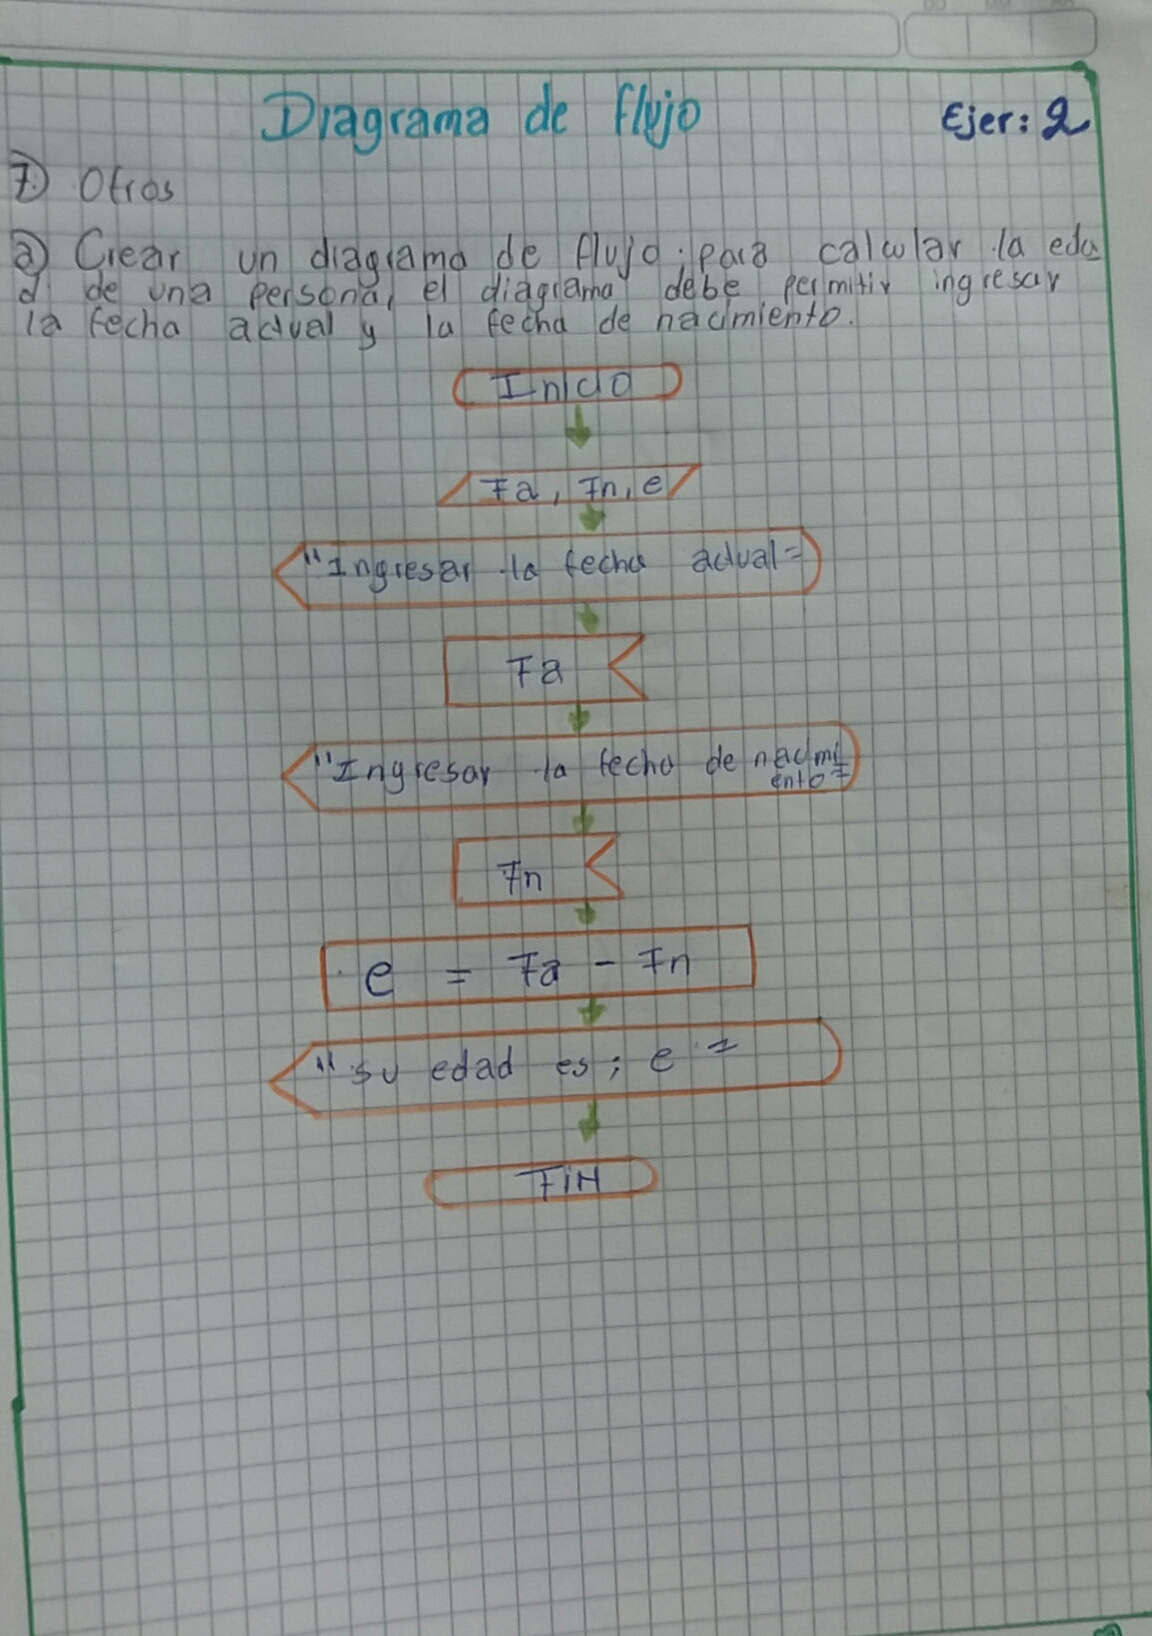 Diagrama de flujo
Ejer: 2
7) Otros
a) Crear un diagrama de flujo para calcular la eda
d de una persona, el diagrama debe permitir ingresar
la fecha actual y la fecha de nacimiento.
Inicio
Fa, Fn, e
"Ingresar la fecha actual="
Fa
"Ingresar la fecha de nacimi
ento="
Fn
e = Fa - Fn
"su edad es; e =
FiN